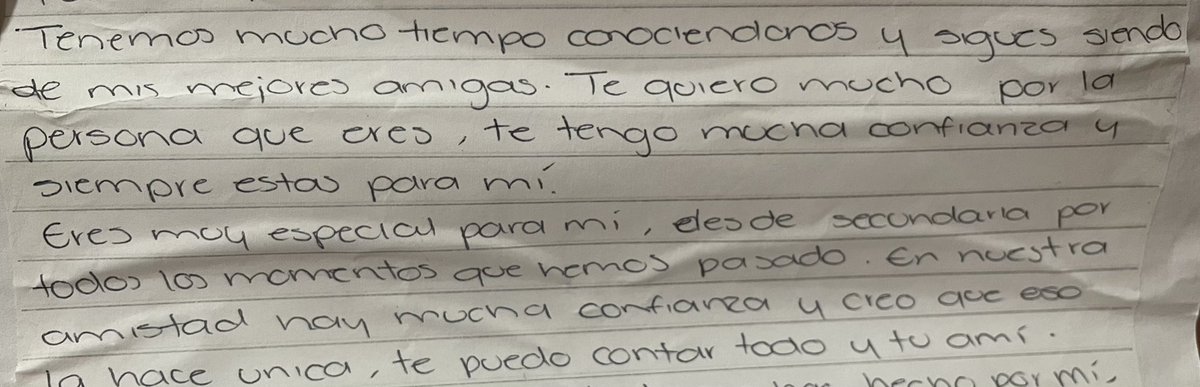 Tenemos mucho tiempo conociendonos y sigues siendo
de mis mejores amigas. Te quiero mucho por la
persona que eres, te tengo mucha confianza y
siempre estas para mí.
Eres muy especial para mi, desde secundaria por
todos los momentos que hemos pasado. En nuestra
amistad hay mucha confianza y creo que eso
la hace unica, te puedo contar todo y tu amí.
hecho por mí,